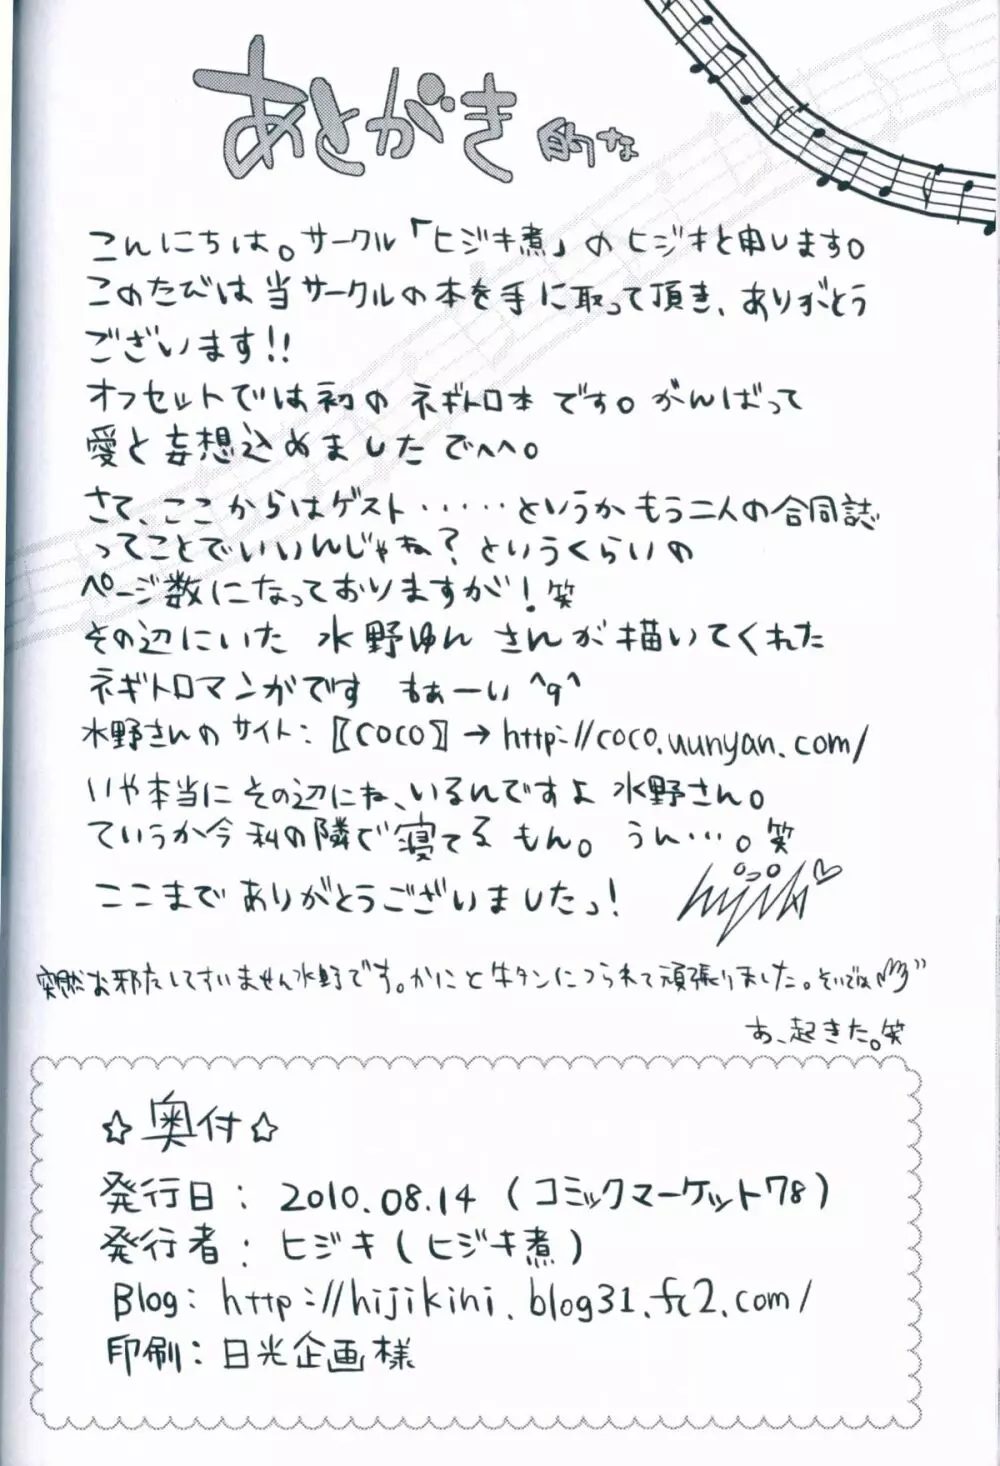 あとがき的な
こんにちは。サークル「ヒジキ煮」のヒジキと申します。
このたびは当サークルの本を手に取って頂き、ありがとう
ございます!!
オフセットでは初のネギトロ本です。がんばって
愛と妄想込めましたでへへ。
さて、ここからはゲスト・・・・・というかもう二人の合同誌
ってことでいいんじゃね?というくらいの
ページ数になっておりますが!笑
その辺にいた 水野ゆん さんが描いてくれた
ネギトロマンガです もぁーい ^q^
水野さんのサイト:〖COCO〗→http://coco.uunyan.com/
いや本当にその辺にね、いるんですよ水野さん。
ていうか今私の隣で寝てるもん。うん…。笑
ここまでありがとうございましたっ!
hijiki♡
突然お邪魔してすいません水野です。かにと牛タンにつられて頑張りました。そいでは
あ、起きた。笑
☆奥付☆
発行日:2010.08.14(コミックマーケット78)
発行者:ヒジキ(ヒジキ煮)
Blog:http://hijikini.blog31.fc2.com/
印刷:日光企画様